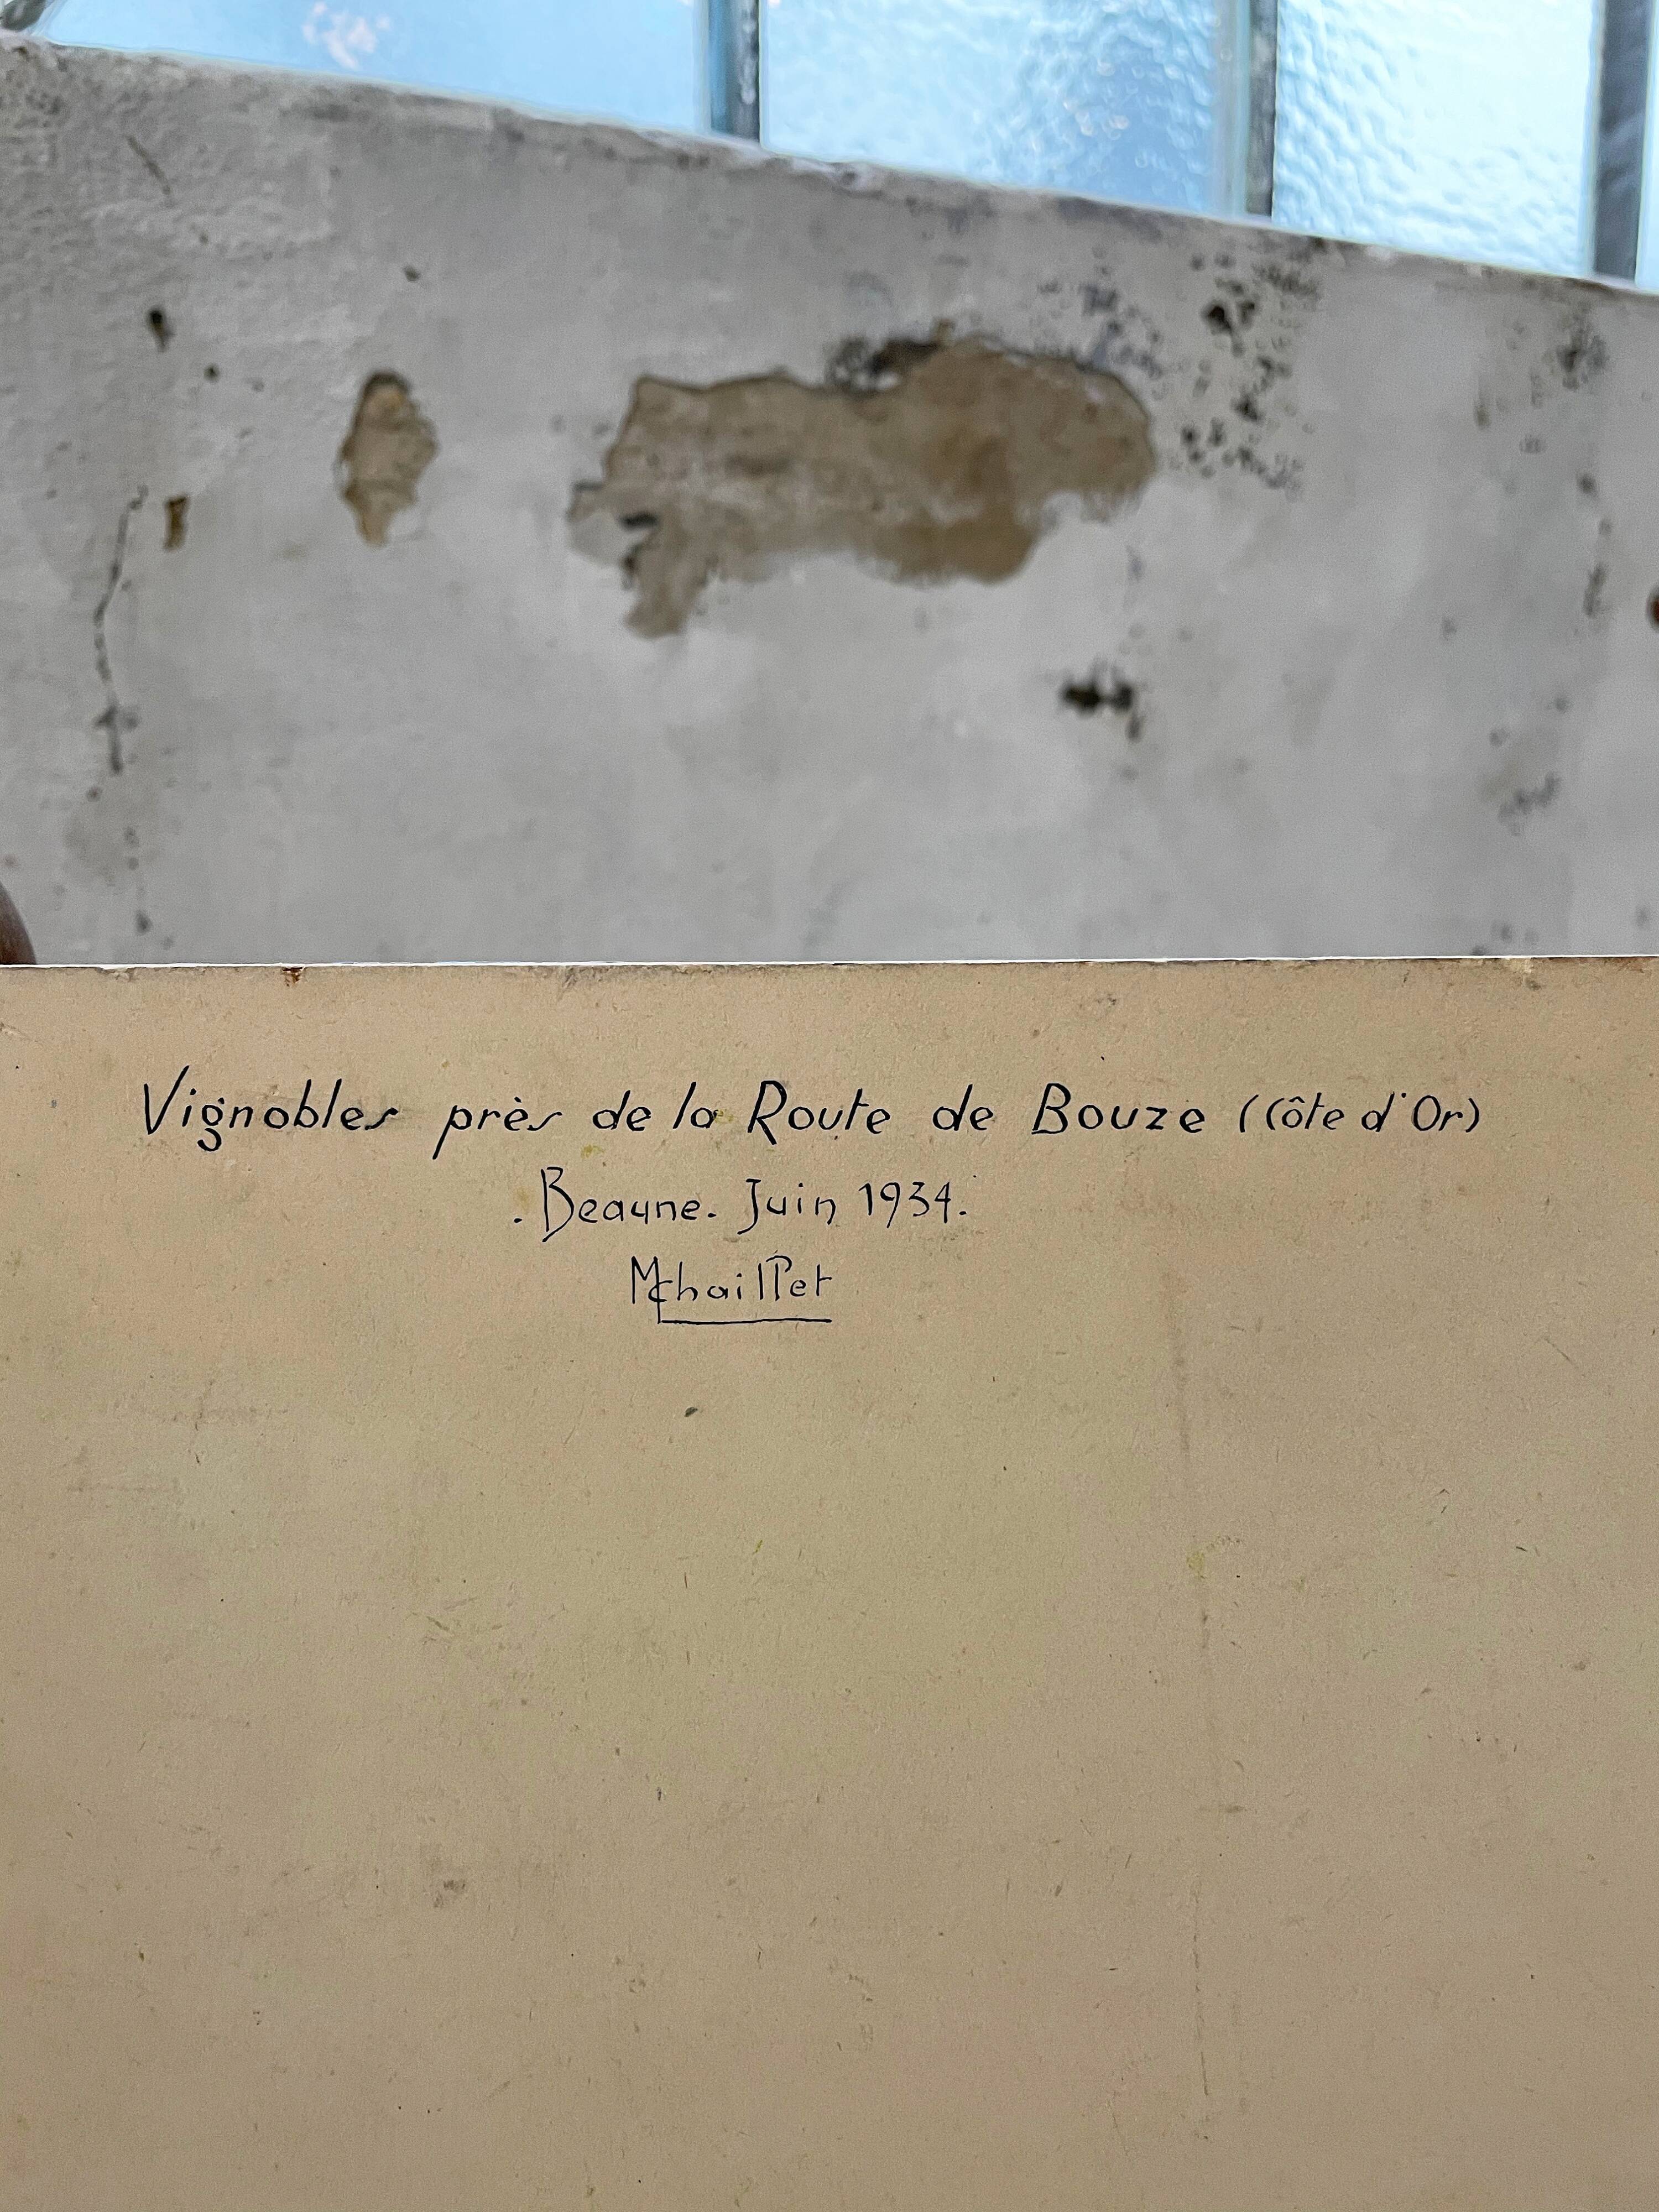 Vignobles près de la Route de Bouze (Côte d'Or)
. Beaune. Juin 1934.
MChaillet